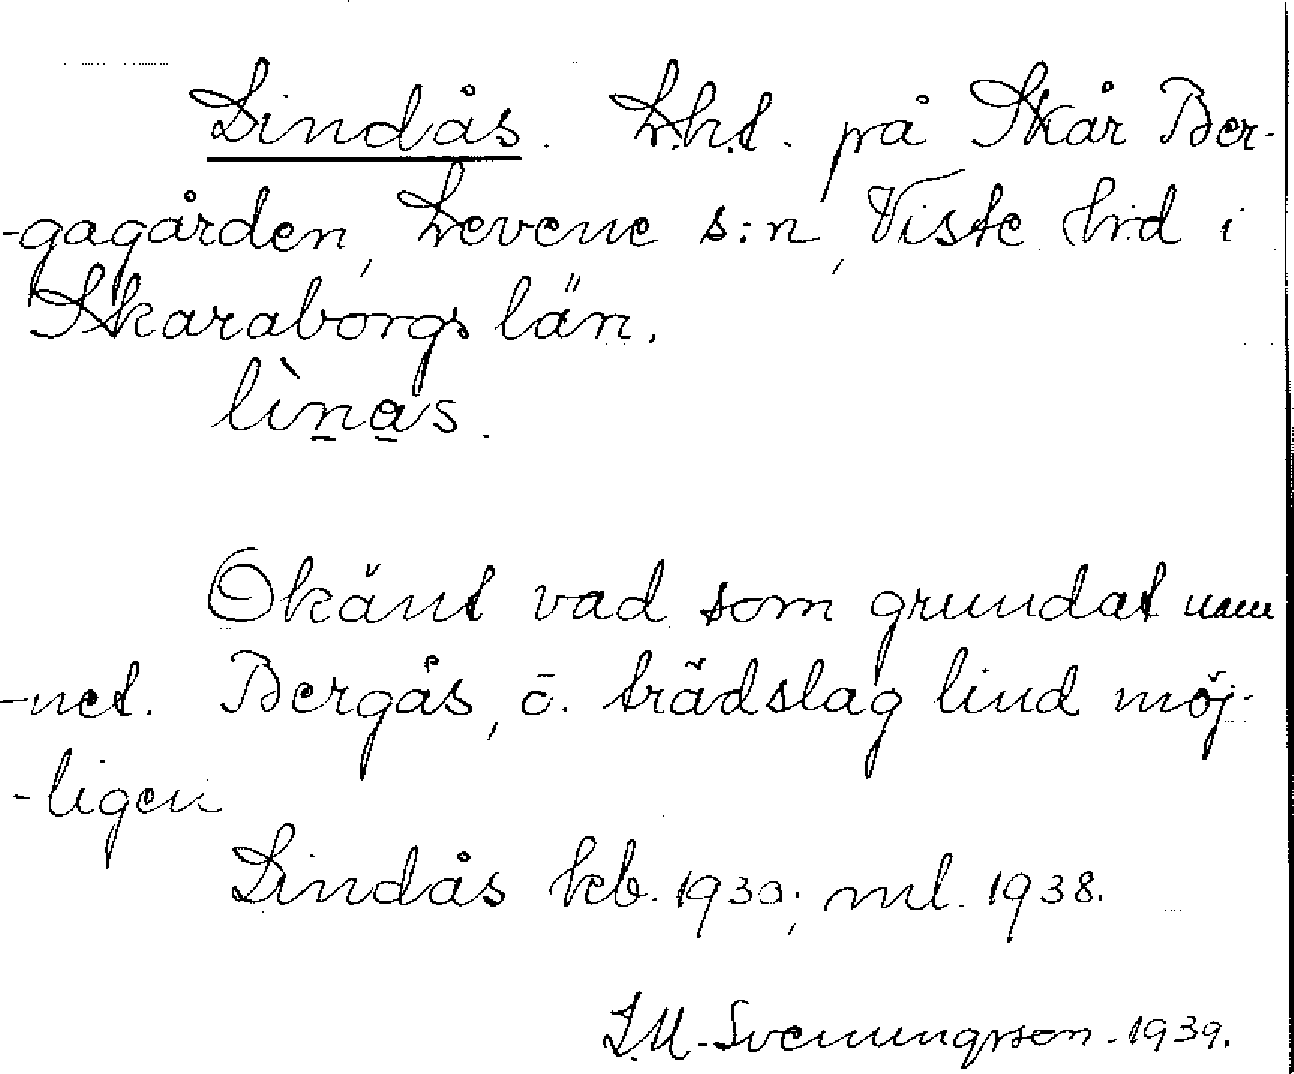 Lindås. Lht. på Skår Ber-
-gagården, Levene s:n, Viste hd i
Skaraborgs län.
lìnas.
Okänt vad som grundat nam
-net. Bergås, o. trädslag lind möj-
-ligen
Lindås kb. 1930; ml. 1938.
Svenungsson. 1939.